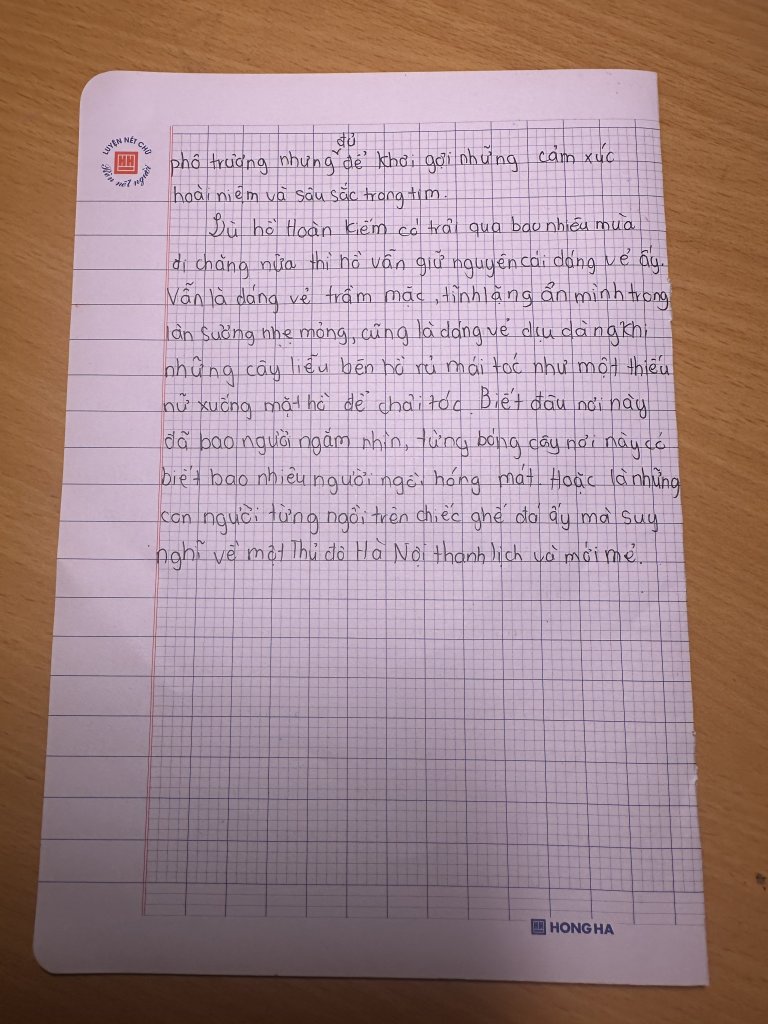 LUYỆN NÉT CHỮ
HH
Rèn nết người
đủ
phô trương nhưng để khơi gợi những cảm xúc
hoài niệm và sâu sắc trong tim.
Dù hồ Hoàn Kiếm có trải qua bao nhiêu mùa
đi chăng nữa thì hồ vẫn giữ nguyên cái dáng vẻ ấy.
Vẫn là dáng vẻ trầm mặc, tĩnh lặng ẩn mình trong
làn sương nhẹ mỏng, cũng là dáng vẻ dịu dàng khi
những cây liễu bên hồ rủ mái tóc như một thiếu
nữ xuống mặt hồ để chải tóc. Biết đâu nơi này
đã bao người ngắm nhìn, từng bóng cây nơi này có
biết bao nhiêu người ngồi hóng mát. Hoặc là những
con người từng ngồi trên chiếc ghế đá ấy mà suy
nghĩ về một Thủ đô Hà Nội thanh lịch và mới mẻ.
HH HONG HA